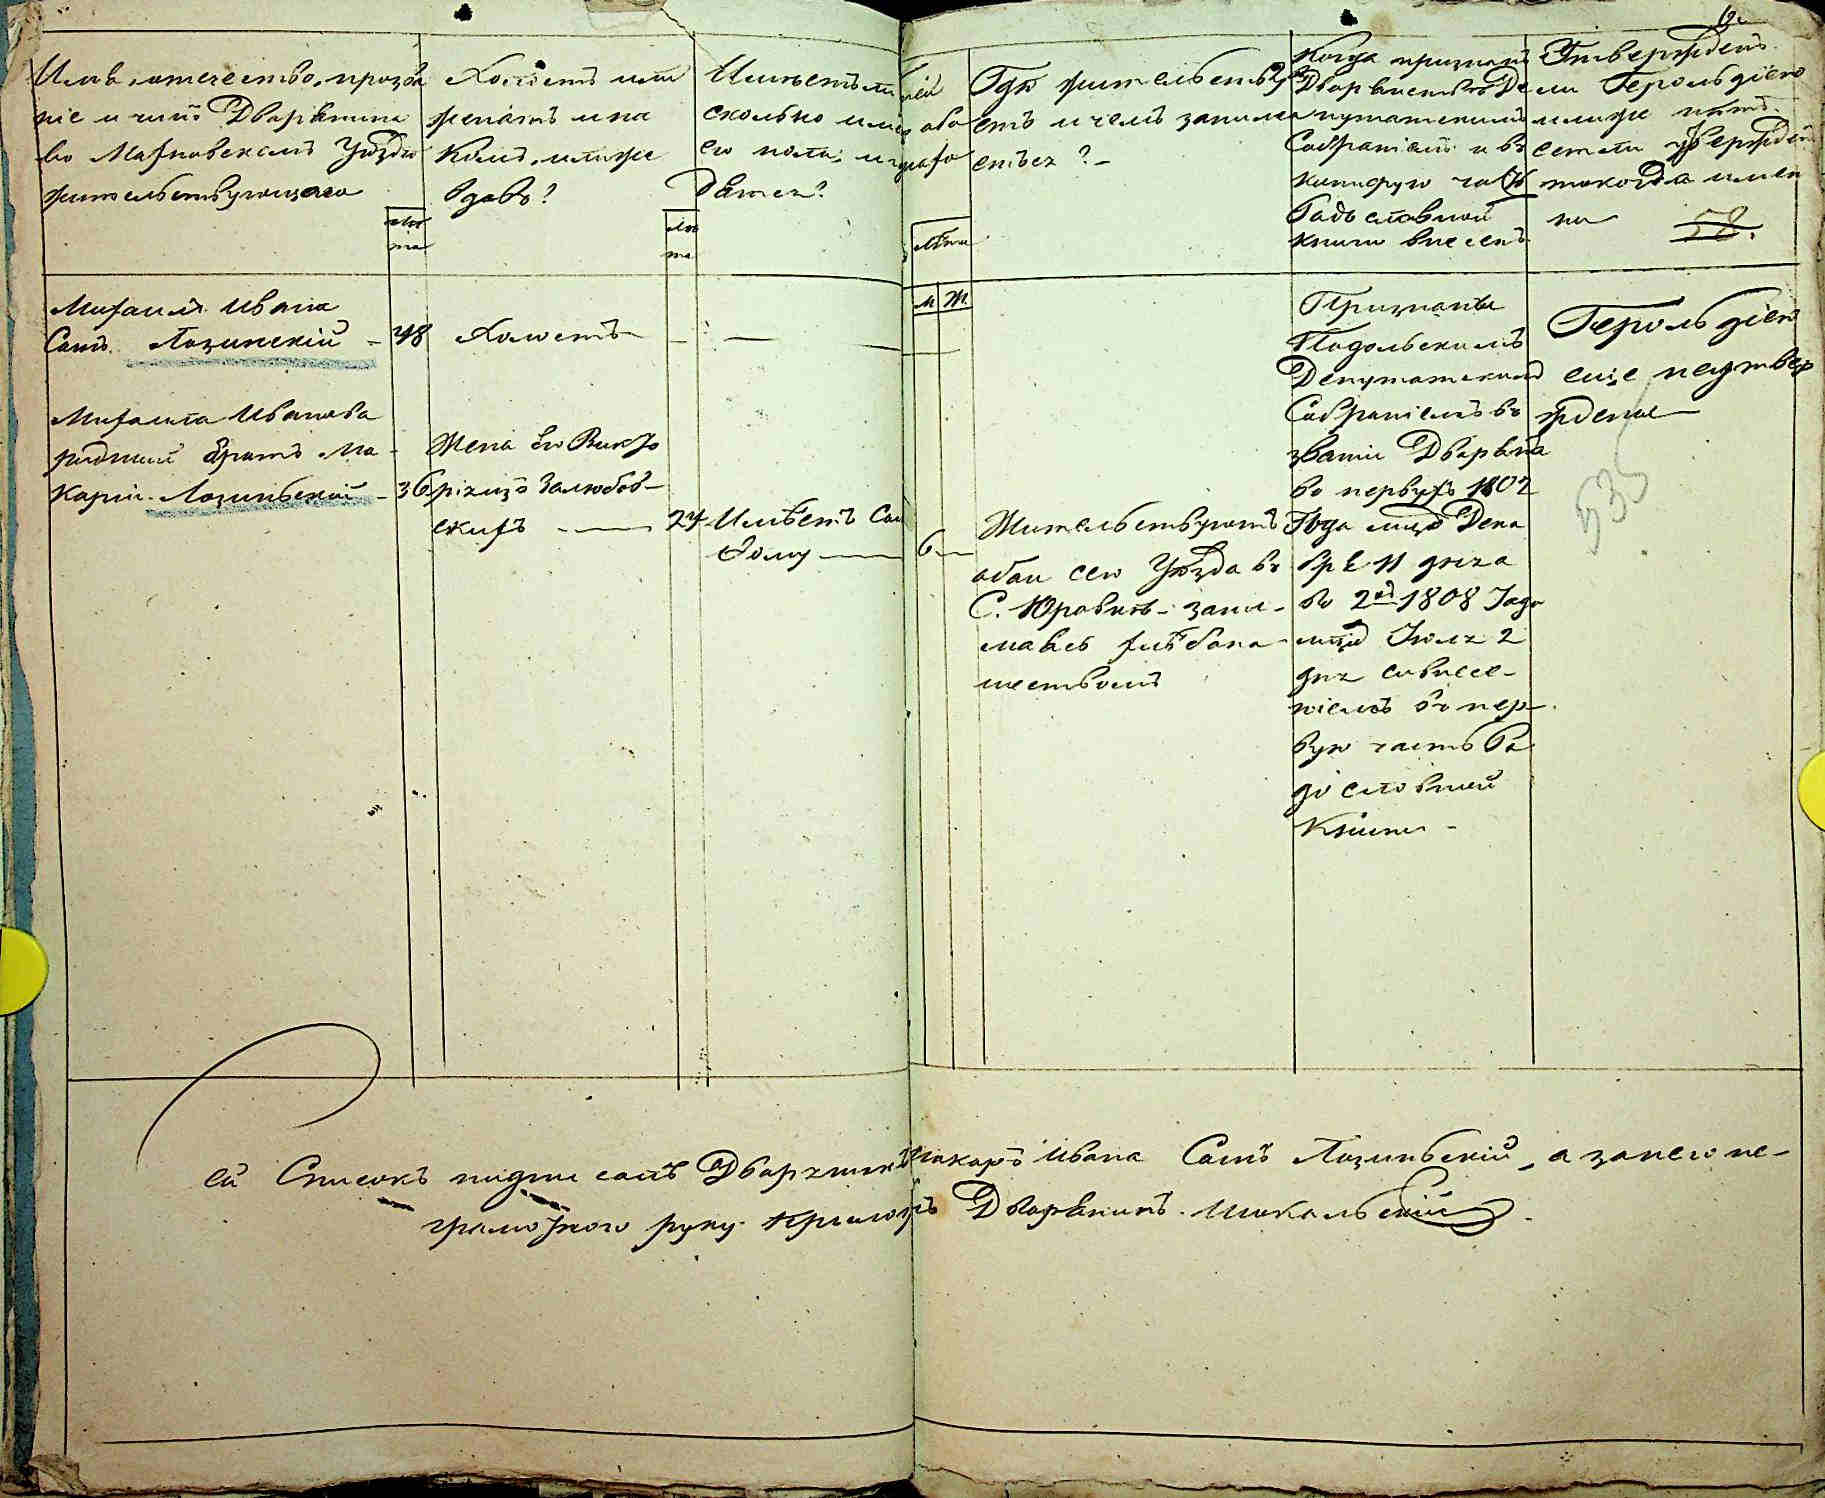 Имя, отечество, прозва
ніе и чинъ Дворянина
во Махновскомъ Уѣзде
жительствующаго
Лѣ
та
Холостъ или
женатъ и на
комъ, или же
вдовъ?
Лѣ
та
Имѣетъ ли
сколько и
его пола, и
Детей?
Лѣта
М Ж
Где жительству
етъ и чемъ занима
ется?
Когда признанъ
Дворянствомъ Де
путатскимъ
Собраніемъ и въ
каторую часть
Родословной
книги внесенъ
Утвержденъ
ли Герольдіею
или же нѣтъ.
естли утвержденъ
то когда имен
но
58.
Михаилъ Ивана
Сынъ Лозинскій
48
Холостъ
Михаила Иванова
родный братъ Ма
карій Лозинскій
36
Жена Его Викто
рія изъ Залюбов
скихъ
24
Имѣетъ Сы
6
Жительствуютъ
оба сего Уѣзда въ
С. Юровкѣ зани
маясь хлѣбопа
шествомъ
Признаны
Подольскимъ
Депутатскимъ
Собраніемъ въ
званіи Дворяна
во первыхъ 1802
Года мцѣ Дека
бре 11 дня а
во 2хъ 1808 Года
мцѣ Іюля 2
дня совнесе
ніемъ въ пер
вую часть Ро
дословной
Книги
Герольдіею
еще неутвер
ждены
535
Сей Списокъ подписалъ Дворянинъ Макаръ Ивана Сынъ Лозинскій, а за него не
грамотного руку приложилъ Дворянинъ